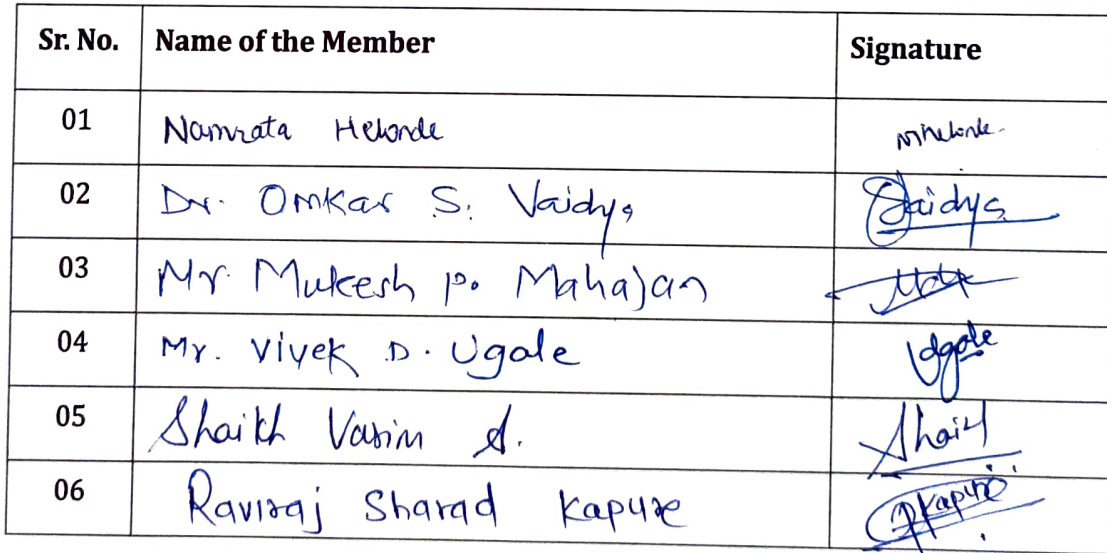 Sr. No. Name of the Member Signature
01 Namrata Helonde
02 Dr. Omkar S. Vaidya Vaidya
03 Mr. Mukesh P. Mahajan
04 Mr. Vivek D. Ugale Ugale
05 Shaikh Vasim A. Shaikh
06 Raviraj Sharad Kapure Kapure